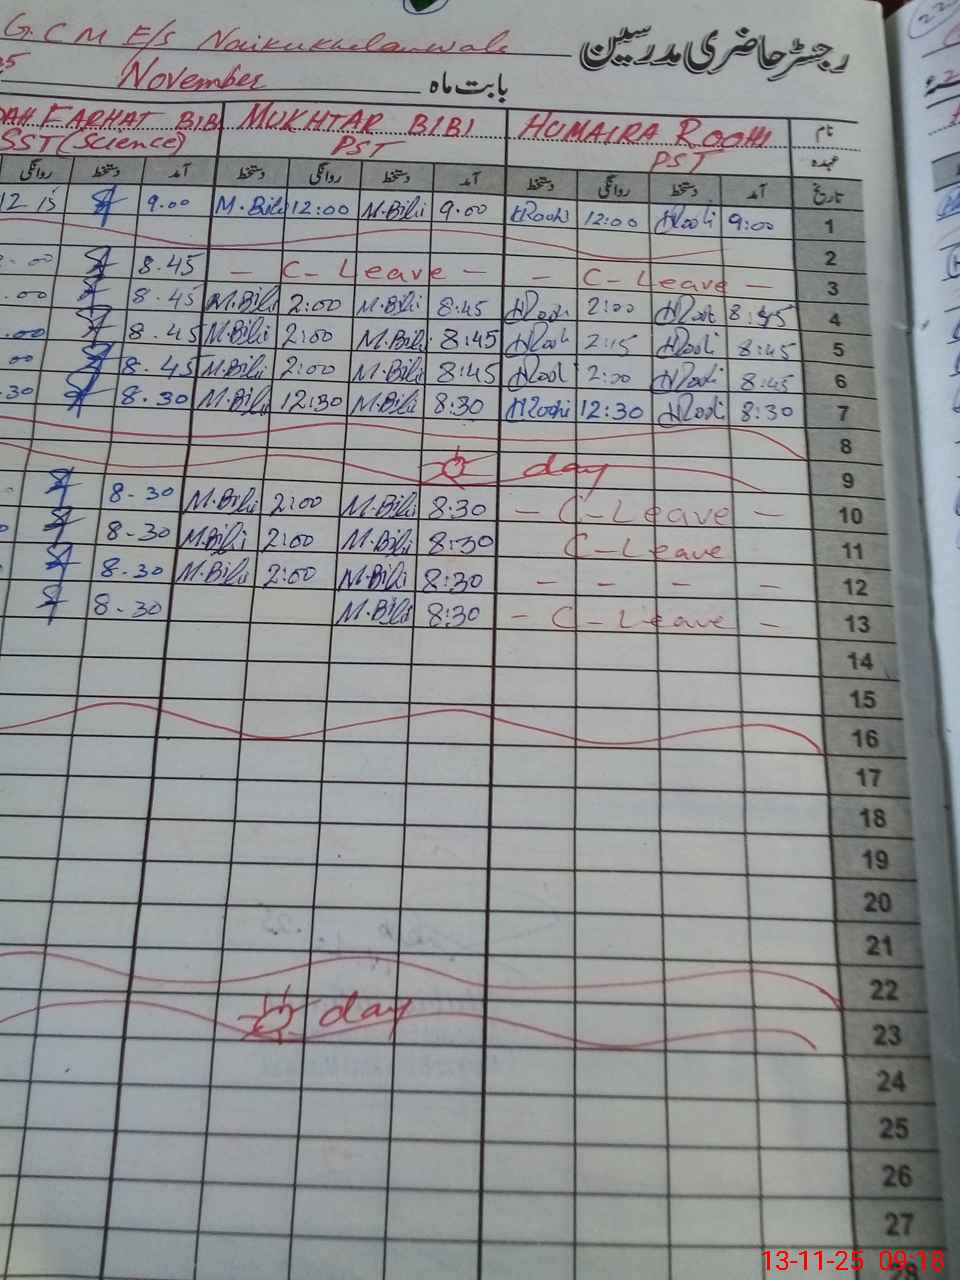 G.C M E/S Naikukhelanwala
رجسٹر حاضری مدرسین
November بابت ماہ
FARHAT BIBI MUKHTAR BIBI HUMAIRA ROOHI نام
SST (Science) PST PST عہدہ
روانگی دستخط آمد دستخط روانگی دستخط آمد دستخط روانگی دستخط آمد تاریخ
12 15 9.00 M.Bibi 12:00 M.Bibi 9.00 HRoohi 12:00 HRoohi 9:00 1
2
00 8.45 - C-Leave - - C-Leave - 3
.00 8.45 M.Bibi 2:00 M.Bibi 8:45 HRoohi 2:00 HRoohi 8:45 4
.00 8.45 M.Bibi 2:00 M.Bibi 8:45 HRoohi 2:15 HRoohi 8:45 5
00 8.45 M.Bibi 2:00 M.Bibi 8:45 HRoohi 2:00 HRoohi 8:45 6
.30 8.30 M.Bibi 12:30 M.Bibi 8:30 HRoohi 12:30 HRoohi 8:30 7
8
day 9
8-30 M.Bibi 2:00 M.Bibi 8:30 - C-Leave - 10
8-30 M.Bibi 2:00 M.Bibi 8:30 C-Leave 11
8-30 M.Bibi 2:00 M.Bibi 8:30 - - - - 12
8-30 M.Bibi 8:30 - C-Leave - 13
14
15
16
17
18
19
20
21
22
day 23
24
25
26
27
13-11-25 09:18